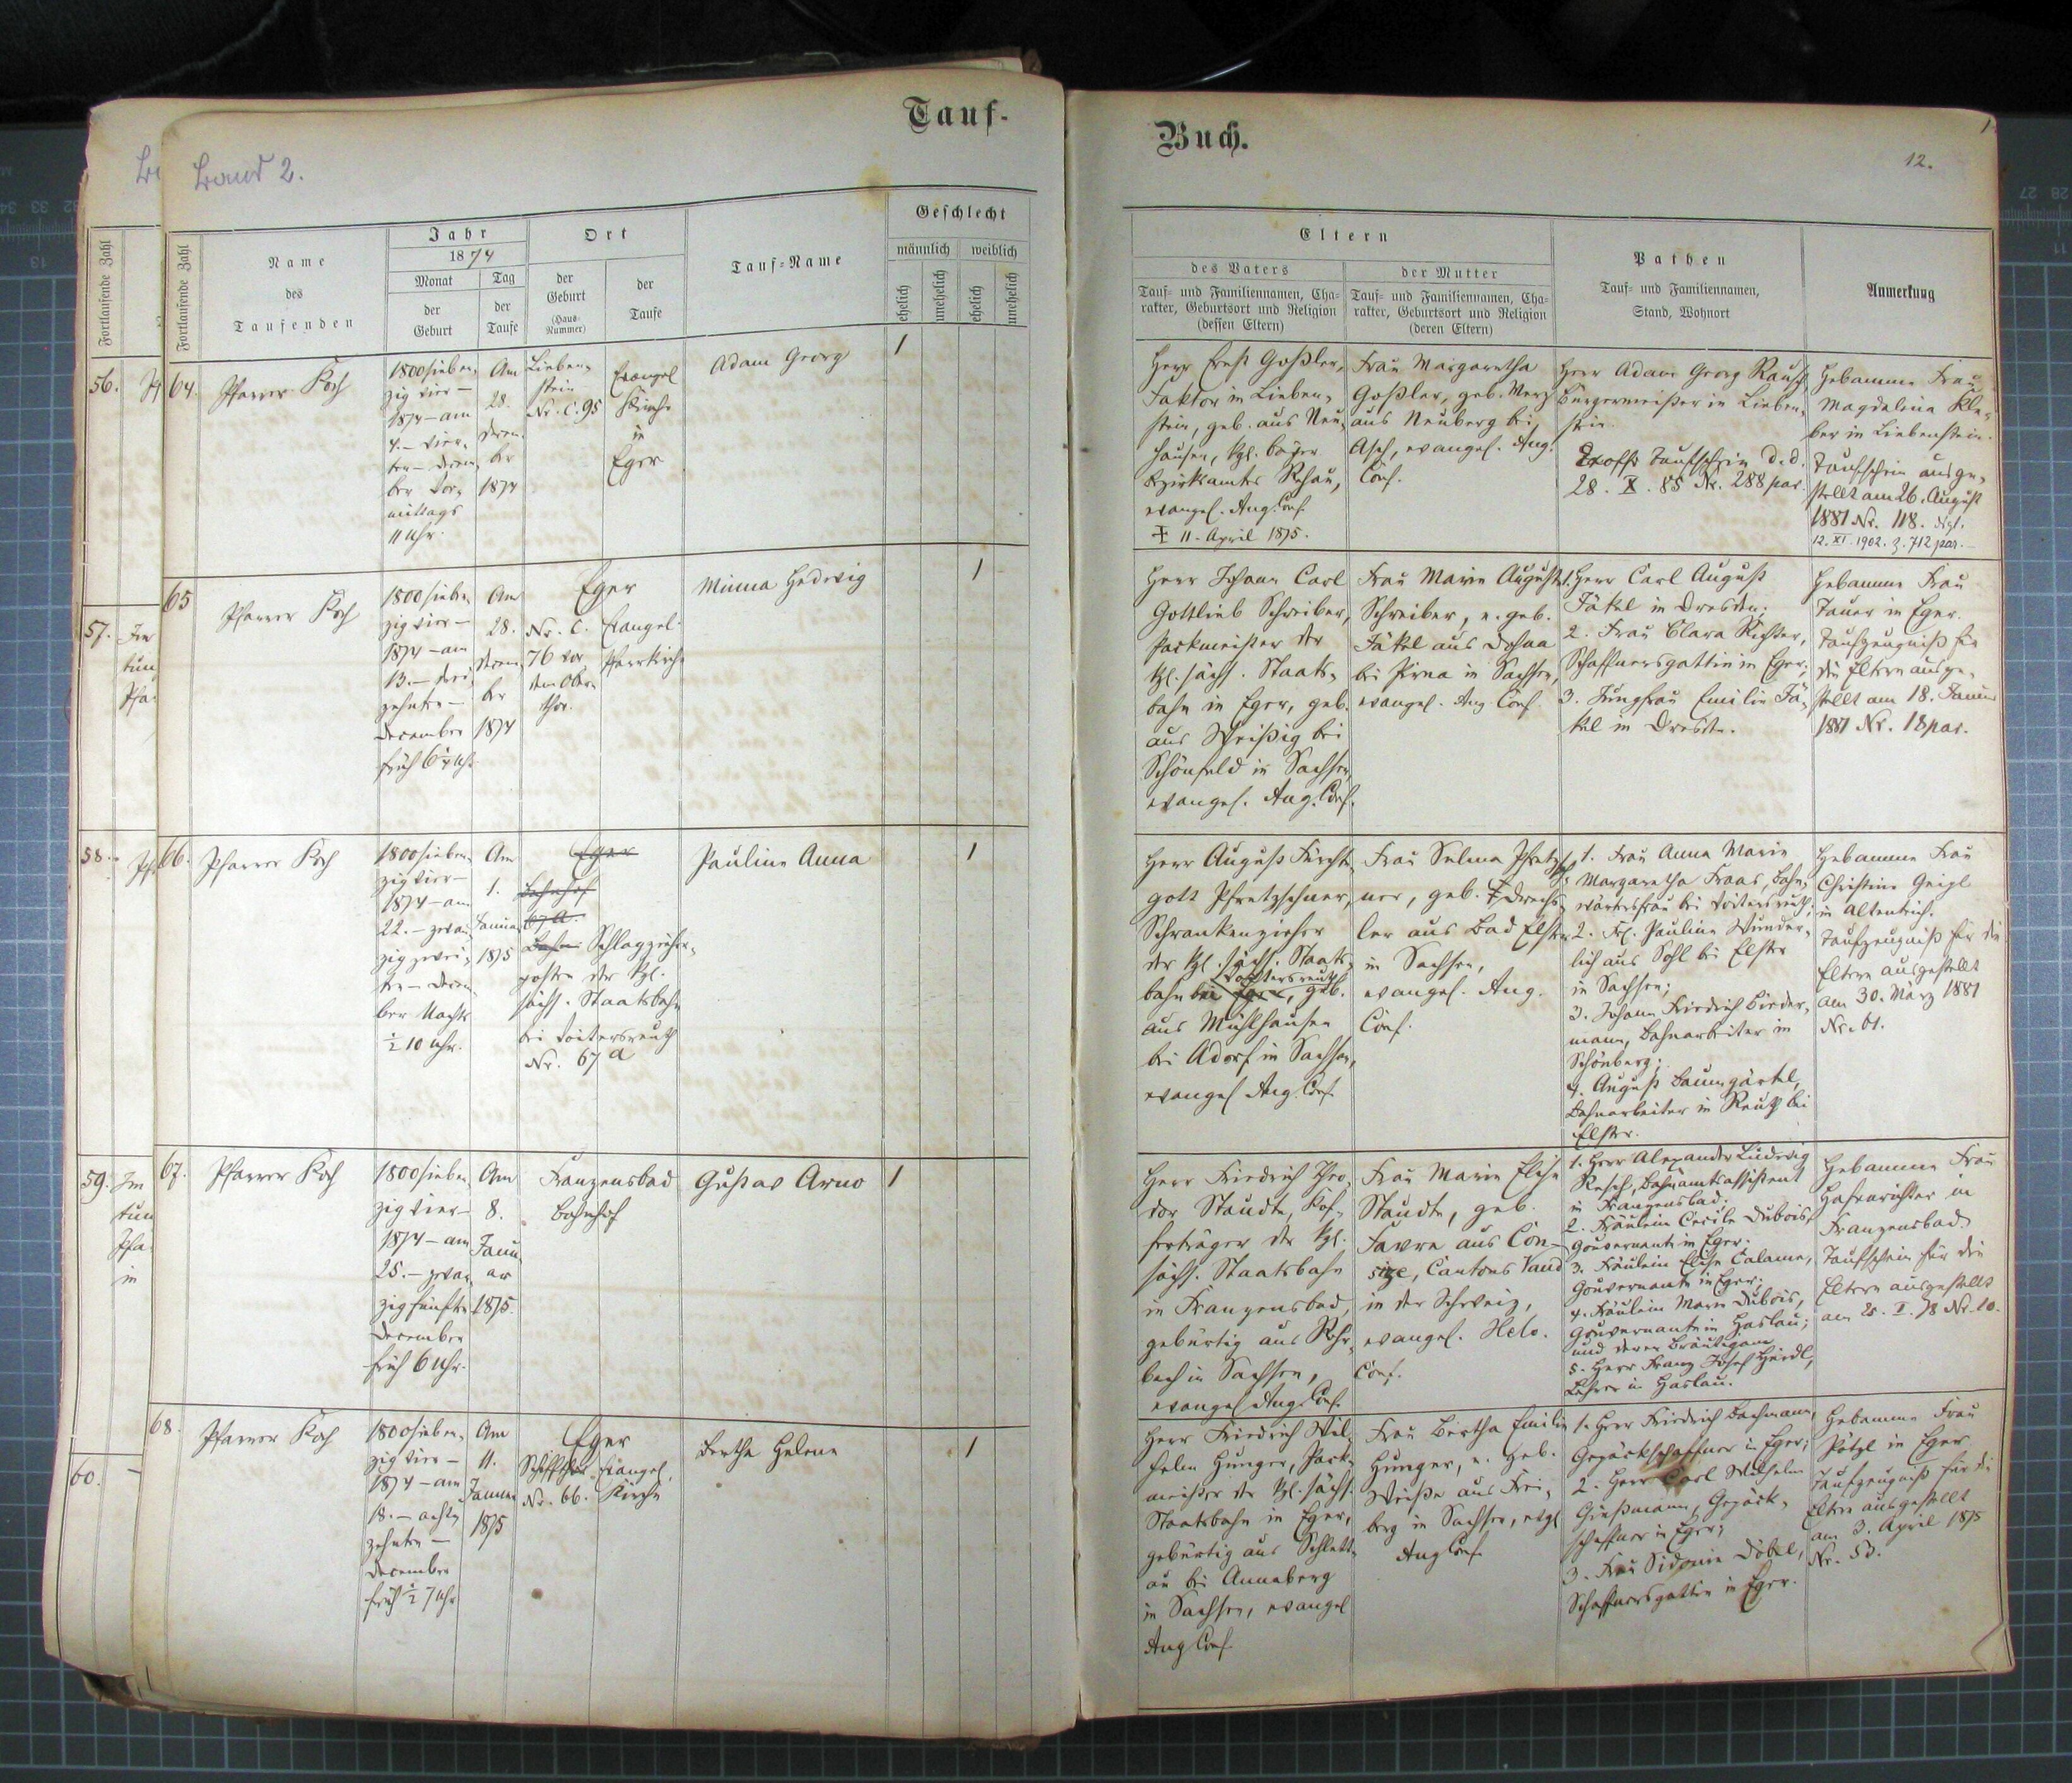 Tauf-
Band 2.
Fortlaufende Zahl
Fortlaufende Zahl
Name
des
Taufenden
Jahr
1874
Monat
der
Geburt
Tag
der
Taufe
Ort
der
Geburt
(Haus-
Nummer)
der
Taufe
Tauf-Name
Geschlecht
männlich
weiblich
ehelich
unehelich
ehelich
unehelich
56.
57.
58.
59.
60.
64.
Pfarrer Koch
1800 sieben-
zig vier -
1874 - am
4. - vier-
ten - Decem-
ber Vor-
mittags
11 Uhr.
Am
28.
Decem-
ber
1874
Lieben-
stein
Nr. C. 95
Evangel
Kirche
in
Eger
Adam Georg
1
65
Pfarrer Koch
1800 sieben-
zig vier -
1874 - am
13. - drei-
zehnten -
December
früh 6¼ Uhr
Am
28.
Decem-
ber
1874
Eger
Nr. C.
76 vor
dem Ober-
thor.
Evangel.
Pfarrkirche
Minna Hedwig
1
66.
Pfarrer Koch
1800 sieben-
zig vier -
1874 - am
22. - zwan-
zig zwei-
ten - Decem-
ber Nachts
½ 10 Uhr.
Am
1.
Januar
1875
Eger
Bahnhof
67 a.
Bahn Schlagzieher-
posten der kgl.
sächs. Staatsbahn
bei Voitersreuth
Nr. 67 a
Pauline Anna
1
67.
Pfarrer Koch
1800 sieben-
zig vier -
1874 - am
25. - zwan-
zig fünften
December
früh 6 Uhr.
Am
8.
Janu-
ar
1875.
Franzensbad
Bahnhof
Gustav Arno
1
68.
Pfarrer Koch
1800 sieben-
zig vier -
1874 - am
18. - acht-
zehnten -
December
früh ½ 7 Uhr
Am
11.
Januar
1875
Eger
Schiffthor
Nr. 66.
Evangel.
Kirche
Bertha Helene
1
Buch.
12.
Eltern
des Vaters
Tauf- und Familiennamen, Cha-
rakter, Geburtsort und Religion
(dessen Eltern)
der Mutter
Tauf- und Familiennamen, Cha-
rakter, Geburtsort und Religion
(deren Eltern)
Pathen
Tauf- und Familiennamen,
Stand, Wohnort
Anmerkung
Herr Ernst Goßler,
Faktor in Lieben-
stein, geb. aus Neu-
hausen, kgl. bayer
Bezirksamtes Rehau,
evangel. Aug. Conf.
‡ 11. April 1875.
Frau Margaretha
Goßler, geb. Merz
aus Neuberg bei
Asch, evangel. Aug.
Conf.
Herr Adam Georg Rausch
Bürgermeister in Lieben-
stein.
Taufschein d.d.
28. X. 85 Nr. 288 par.
Hebamme Frau
Magdalena Kle-
ber in Liebenstein.
Taufschein ausge-
stellt am 26. August
1881 Nr. 118.
12. XI. 1902. Z. 712 par.
Herr Johann Carl
Gottlieb Schreiber,
Packmeister der
kgl. sächs. Staats-
bahn in Eger, geb.
aus Weißig bei
Schönfeld in Sachsen,
evangel. Aug. Conf.
Frau Marie Auguste
Schreiber, e. geb.
Fäkel aus Dohna
bei Pirna in Sachsen,
evangel. Aug. Conf.
1. Herr Carl August
Fäkel in Dresden;
2. Frau Clara Richter,
Schaffnersgattin in Eger;
3. Jungfrau Emilie Fä-
kel in Dresden.
Hebamme Frau
Tauer in Eger.
Taufzeugniß für
die Eltern ausge-
stellt am 18. Januar
1881 Nr. 18 par.
Herr August Fürchte-
gott Pfretzschner,
Schrankenzieher
der kgl. sächs. Staats-
Voitersreuth
bahn bei Eger, geb.
aus Mühlhausen
bei Adorf in Sachsen,
evangel Aug. Conf.
Frau Selma Pfretzsch-
ner, geb. Drechs-
ler aus Bad Elster
in Sachsen,
evangel. Aug.
Conf.
1. Frau Anna Marie
Margaretha Fraas, Bahn-
wärtersfrau bei Voitersreuth;
2. Frl. Pauline Wunder-
lich aus Sohl bei Elster
in Sachsen;
3. Johann Friedrich Bieder-
mann, Bahnarbeiter in
Schönberg;
4. August Baumgärtel,
Bahnarbeiter in Reuth bei
Elster.
Hebamme Frau
Christine Geigl
in Altenteich.
Taufzeugniß für die
Eltern ausgestellt
am 30. März 1881
Nr. 61.
Herr Friedrich Theo-
dor Staudte, Kof-
ferträger der kgl.
sächs. Staatsbahn
in Franzensbad,
gebürtig aus Rohr-
bach in Sachsen,
evangel Aug. Conf.
Frau Marie Elise
Staudte, geb.
Favre aus Con-
size, Cantons Vaud
in der Schweiz,
evangel. Helv.
Conf.
1. Herr Alexander Ludwig
Resch, Bahnamtsassistent
in Franzensbad;
2. Fräulein Cecile Dubois,
Gouvernante in Eger;
3. Fräulein Elise Calame,
Gouvernante in Eger;
4. Fräulein Marie Dubois,
Gouvernante in Haslau;
und deren Bräutigam
5. Herr Franz Josef Heidl,
Lehrer in Haslau.
Hebamme Frau
Hafenrichter in
Franzensbad.
Taufschein für die
Eltern ausgestellt
am 25. I. 78 Nr. 10.
Herr Friedrich Wil-
helm Hunger, Pack-
meister der kgl. sächs.
Staatsbahn in Eger,
gebürtig aus Schlett-
au bei Annaberg
in Sachsen, evangel
Aug Conf.
Frau Bertha Emilie
Hunger, e. geb.
Weiße aus Frei-
berg in Sachsen, evgl
Aug Conf.
1. Herr Friedrich Bachmann,
Gepäckschaffner in Eger;
2. Herr Carl Wilhelm
Gießmann, Gepäck-
schaffner in Eger;
3. Frau Sidonie Döbel,
Schaffnersgattin in Eger.
Hebamme Frau
Pötzl in Eger
Taufzeugniß für die
Eltern ausgestellt
am 3. April 1875
Nr. 53.